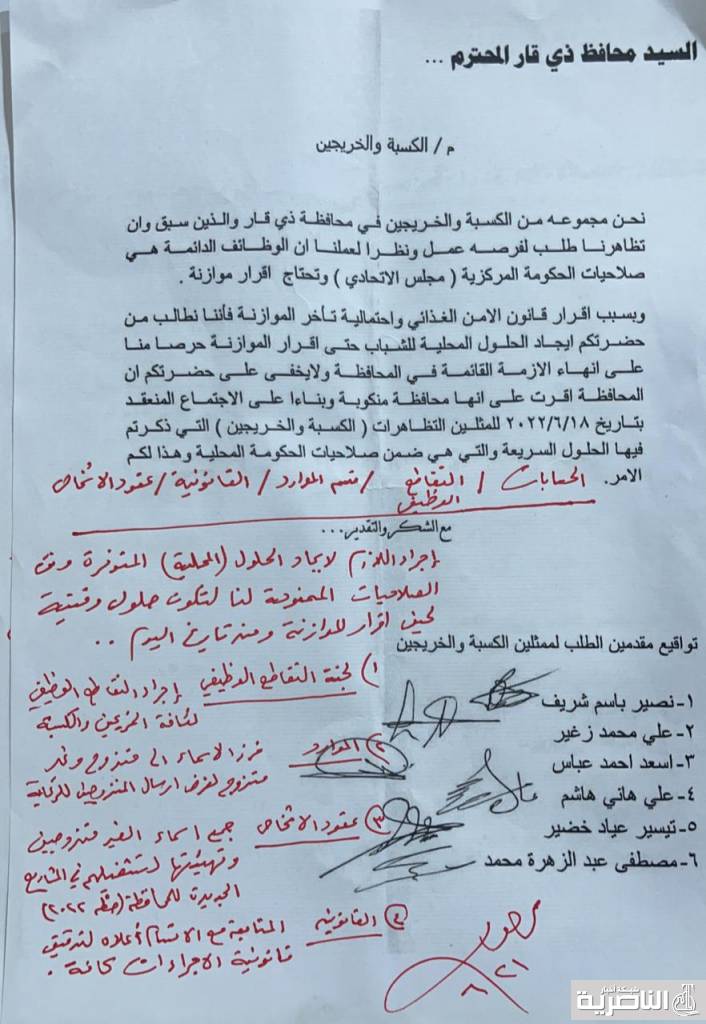 السيد محافظ ذي قار المحترم ...
م / الكسبة والخريجين
نحن مجموعه من الكسبة والخريجين في محافظة ذي قار والذين سبق وان
تظاهرنا طلب لفرصه عمل ونظرا لعملنا ان الوظائف الدائمة هي
صلاحيات الحكومة المركزية ( مجلس الاتحادي ) وتحتاج اقرار موازنة .
وبسبب اقرار قانون الامن الغذائي واحتمالية تأخر الموازنة فأننا نطالب من
حضرتكم ايجاد الحلول المحلية للشباب حتى اقرار الموازنة حرصا منا
على انهاء الازمة القائمة في المحافظة ولايخفى على حضرتكم ان
المحافظة اقرت على انها محافظة منكوبة وبناءا على الاجتماع المنعقد
بتاريخ ٢٠٢٢/٦/١٨ للمثلين التظاهرات ( الكسبة والخريجين ) التي ذكرتم
فيها الحلول السريعة والتي هي ضمن صلاحيات الحكومة المحلية وهذا لكم
الامر. الحسابات / التقاطع الوظيفي / قسم الموارد / القانونية / عقود الاشخاص
مع الشكر والتقدير...
إجراء اللازم لايجاد الحلول (المحلية) المتوفرة وفق
الصلاحيات الممنوحة لنا لتكون حلول وقتية
لحين اقرار الموازنة ومنذ تاريخ اليوم ..
تواقيع مقدمين الطلب لممثلين الكسبة والخريجين
١-نصير باسم شريف
٢-علي محمد زغير
٣-اسعد احمد عباس
٤-علي هاني هاشم
٥-تيسير عياد خضير
٦-مصطفى عبد الزهرة محمد
١) لجنة التقاطع الوظيفي إجراء التقاطع الوظيفي
لكافة الخريجين والكسبة
٢) الموارد فرز الاسماء الى متزوج وغير
متزوج لغرض ارسال المتزوجين للرعاية
٣) عقود الاشخاص جميع اسماء الغير متزوجين
وتهيئتها لتشغيلهم في المشاريع
الجديدة للمحافظة (خطة ٢٠٢٢)
٤) القانونية المتابعة مع الاقسام أعلاه لتدقيق
قانونية الاجراءات كافة .
٨/٢١
شبكة أخبار
الناصرية